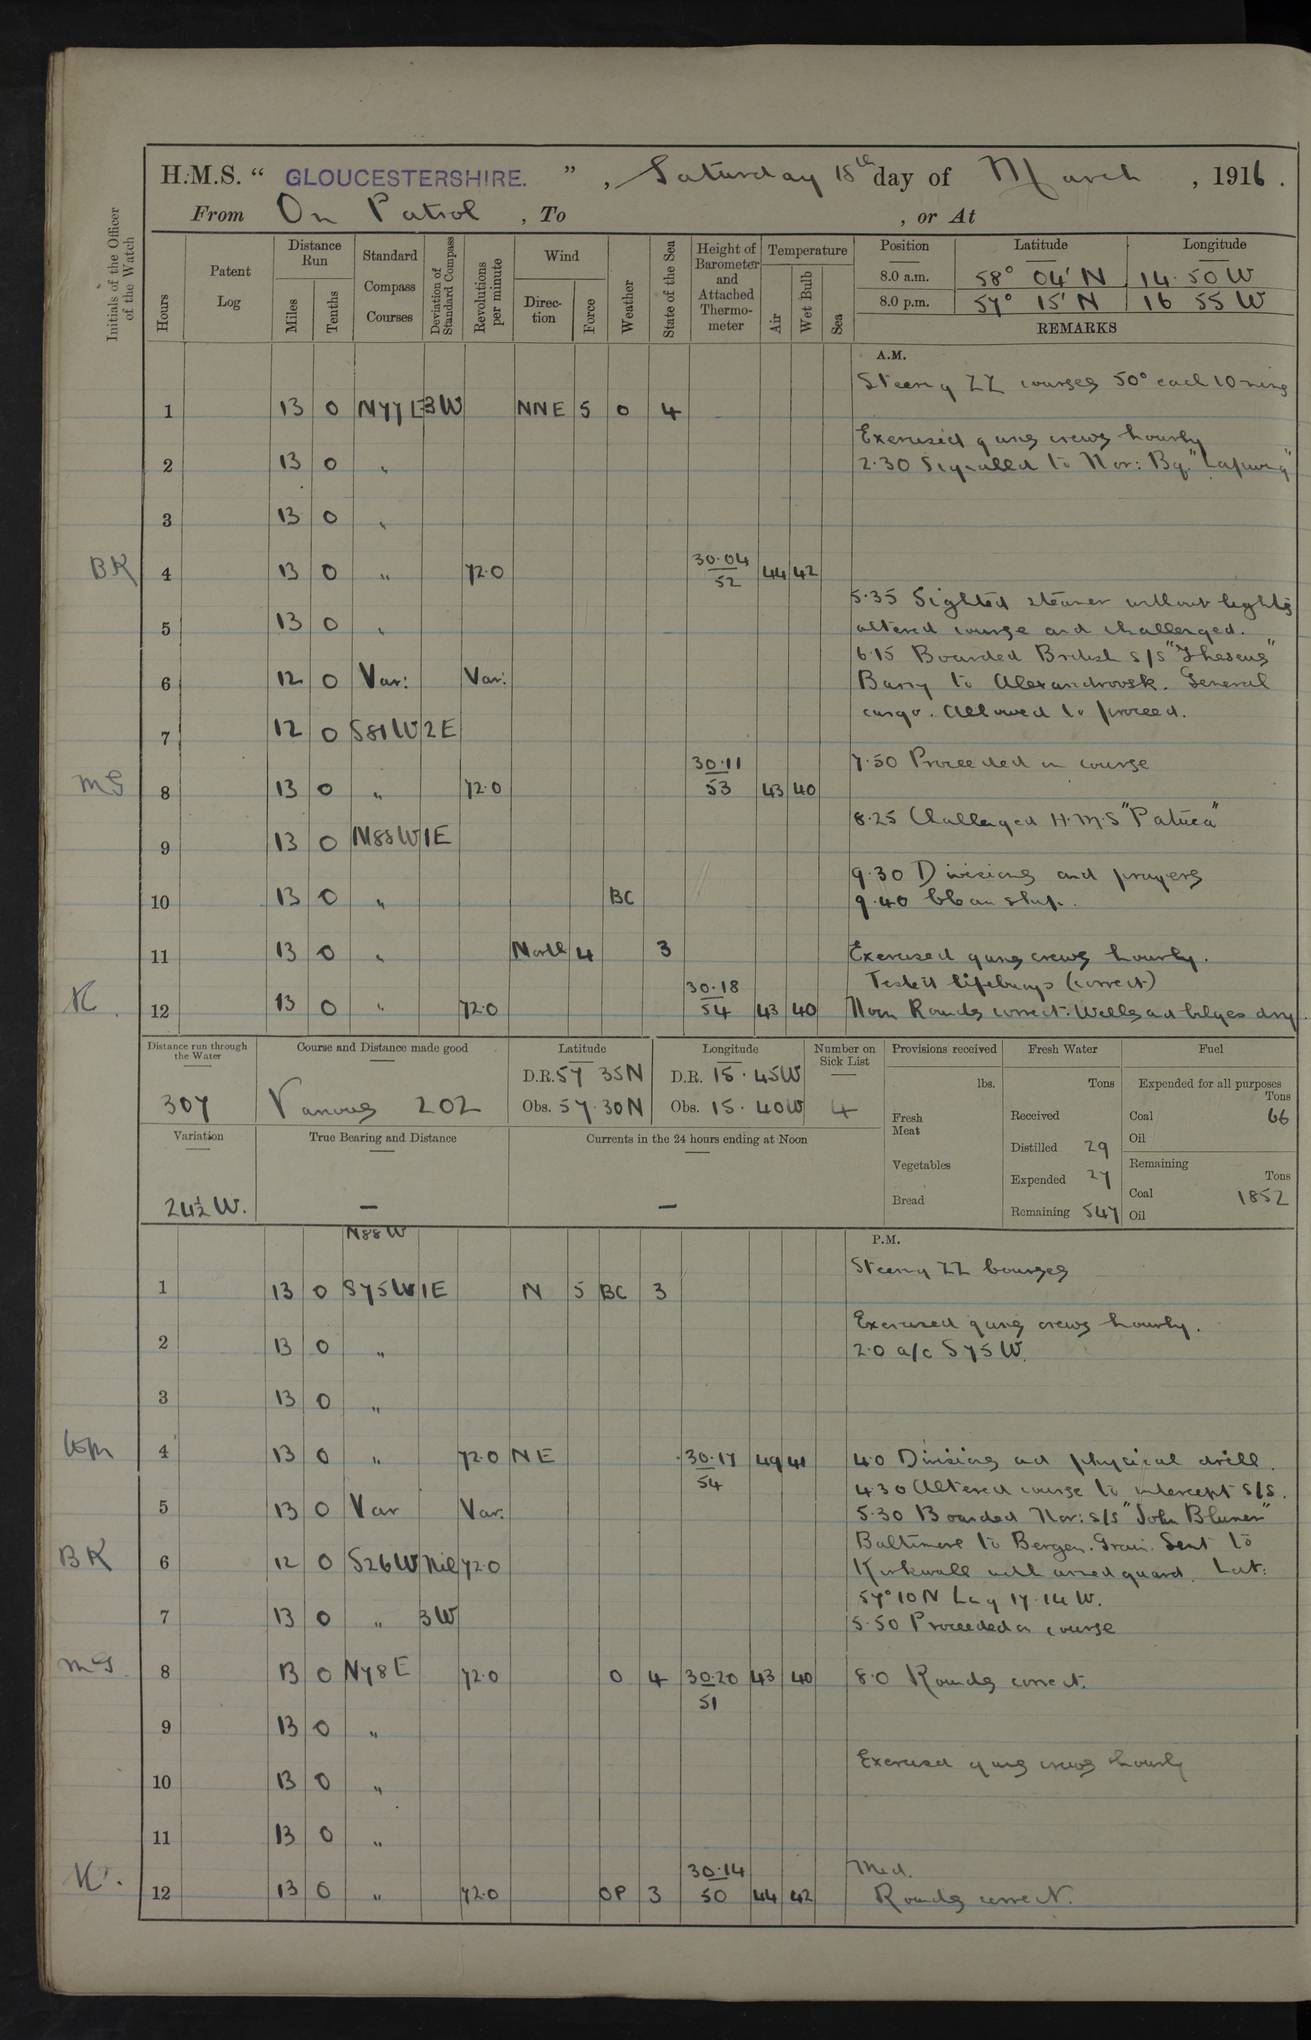 H.M.S. " GLOUCESTERSHIRE. " , Saturday 18th day of March , 1916 .
From On Patrol , To , or At
Initials of the Officer of the Watch
Hours
Patent Log
Distance Run
Miles
Tenths
Standard Compass Courses
Deviation of Standard Compass
Revolutions per minute
Wind
Direc-tion
Force
Weather
State of the Sea
Height of Barometer and Attached Thermo-meter
Temperature
Air
Wet Bulb
Sea
Position Latitude Longitude
8.0 a.m. 58° 04' N 14 · 50 W
8.0 p.m. 57° 15' N 16 55 W
REMARKS
A.M.
Steering ZZ courses 50° each 10 mins
1 13 0 N77E 3W NNE 5 0 4
Exercised guns crews hourly
2 13 0 " 2·30 Signalled to Nor: Bq. "Lapwing"
3 13 0 "
BK 4 13 0 " 72·0 30·04 52 44 42
5·35 Sighted steamer without lights
5 13 0 " altered course and challenged.
6·15 Boarded British s/s "Theseus"
6 12 0 Var: Var: Barry to Alexandrovsk. General
cargo. Allowed to proceed.
7 12 0 S81W 2E
7·50 Proceeded on course
MG 8 13 0 " 72·0 30·11 53 43 40
8·25 Challenged H.M.S "Patuca"
9 13 0 N88W 1E
9·30 Divisions and prayers
10 13 0 " BC 9·40 Clean ship.
11 13 0 " North 4 3 Exercised guns crews hourly.
Tested lifebuoys (correct)
K. 12 13 0 " 72·0 30·18 54 43 40 Noon Rounds correct: Wells and bilges dry
Distance run through the Water
307
Course and Distance made good
Various 202
Latitude
D.R. 57 35N
Obs. 57·30N
Longitude
D.R. 15 · 45W
Obs. 15 · 40W
Number on Sick List
4
Provisions received
lbs.
Fresh Meat
Vegetables
Bread
Fresh Water
Tons
Received
Distilled 29
Expended 27
Remaining 547
Fuel
Expended for all purposes
Tons
Coal 66
Oil
Remaining
Tons
Coal 1852
Oil
Variation
24½ W.
True Bearing and Distance
—
Currents in the 24 hours ending at Noon
—
P.M.
N88W
Steering ZZ Courses
1 13 0 S75W 1E N 5 BC 3
Exercised guns crews hourly.
2 13 0 " 2·0 a/c S75W.
3 13 0 "
4 13 0 " 72·0 NE 30·17 54 49 41 4·0 Divisions and physical drill.
4·30 Altered course to intercept s/s.
5 13 0 Var Var. 5·30 Boarded Nor: s/s "John Blumer"
Baltimore to Bergen. Grain. Sent to
BK 6 12 0 S26W Nil 72·0 Kirkwall with armed guard. Lat:
57° 10 N Long 17·14 W.
7 13 0 " 3W 5·50 Proceeded on course
MG. 8 13 0 N78E 72·0 0 4 30·20 51 43 40 8·0 Rounds correct.
9 13 0 "
Exercised guns crews hourly
10 13 0 "
11 13 0 "
Mid.
K. 12 13 0 " 72·0 OP 3 30·14 50 44 42 Rounds correct.